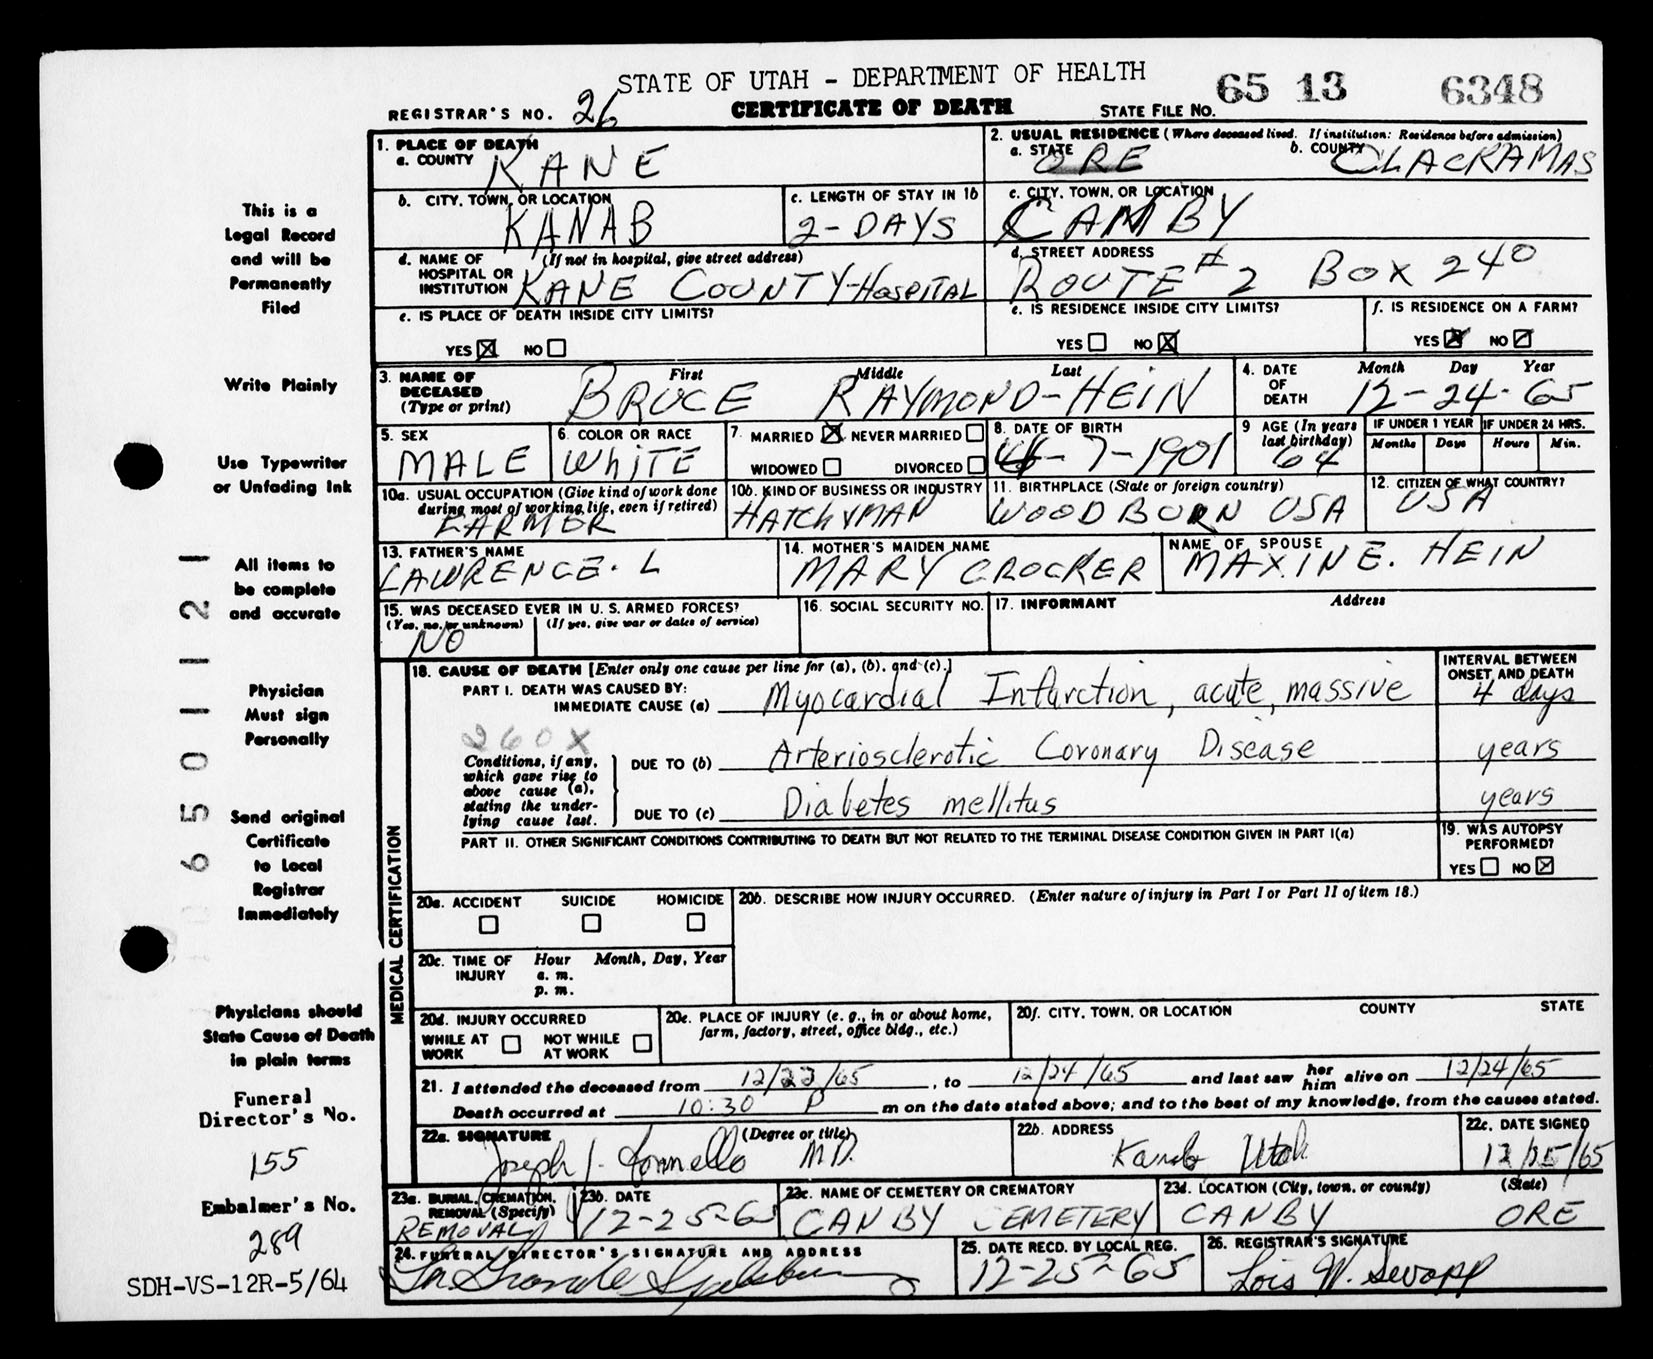 STATE OF UTAH - DEPARTMENT OF HEALTH
65 13 6348
REGISTRAR'S NO. 26 CERTIFICATE OF DEATH STATE FILE NO.
1. PLACE OF DEATH
a. COUNTY KANE
2. USUAL RESIDENCE (Where deceased lived. If institution: Residence before admission)
a. STATE ORE b. COUNTY CLACKAMAS
b. CITY, TOWN, OR LOCATION KANAB
c. LENGTH OF STAY IN 1b 2-DAYS
c. CITY, TOWN, OR LOCATION CANBY
d. NAME OF HOSPITAL OR INSTITUTION (If not in hospital, give street address) KANE COUNTY-HOSPITAL
d. STREET ADDRESS ROUTE #2 BOX 240
e. IS PLACE OF DEATH INSIDE CITY LIMITS?
YES ☒ NO ☐
e. IS RESIDENCE INSIDE CITY LIMITS?
YES ☐ NO ☒
f. IS RESIDENCE ON A FARM?
YES ☒ NO ☑
3. NAME OF DECEASED (Type or print) First Middle Last
BRUCE RAYMOND-HEIN
4. DATE OF DEATH Month Day Year
12-24-65
5. SEX MALE
6. COLOR OR RACE WHITE
7. MARRIED ☒ NEVER MARRIED ☐
WIDOWED ☐ DIVORCED ☐
8. DATE OF BIRTH 6-7-1901
9 AGE (In years last birthday) 64
IF UNDER 1 YEAR Months Days
IF UNDER 24 HRS. Hours Min.
10a. USUAL OCCUPATION (Give kind of work done during most of working life, even if retired) FARMER
10b. KIND OF BUSINESS OR INDUSTRY HATCHYMAN
11. BIRTHPLACE (State or foreign country) WOODBURN USA
12. CITIZEN OF WHAT COUNTRY? USA
13. FATHER'S NAME LAWRENCE. L
14. MOTHER'S MAIDEN NAME MARY CROCKER
NAME OF SPOUSE MAXINE. HEIN
15. WAS DECEASED EVER IN U. S. ARMED FORCES?
(Yes, no, or unknown) (If yes, give war or dates of service)
NO
16. SOCIAL SECURITY NO.
17. INFORMANT Address
MEDICAL CERTIFICATION
18. CAUSE OF DEATH [Enter only one cause per line for (a), (b), and (c).]
INTERVAL BETWEEN ONSET AND DEATH
PART I. DEATH WAS CAUSED BY:
IMMEDIATE CAUSE (a) Myocardial Infarction, acute, massive 4 days
260X
Conditions, if any, which gave rise to above cause (a), stating the underlying cause last.
DUE TO (b) Arteriosclerotic Coronary Disease years
DUE TO (c) Diabetes mellitus years
PART II. OTHER SIGNIFICANT CONDITIONS CONTRIBUTING TO DEATH BUT NOT RELATED TO THE TERMINAL DISEASE CONDITION GIVEN IN PART I(a)
19. WAS AUTOPSY PERFORMED?
YES ☐ NO ☒
20a. ACCIDENT SUICIDE HOMICIDE
☐ ☐ ☐
20b. DESCRIBE HOW INJURY OCCURRED. (Enter nature of injury in Part I or Part II of item 18.)
20c. TIME OF INJURY Hour Month, Day, Year
a. m.
p. m.
20d. INJURY OCCURRED
WHILE AT WORK ☐ NOT WHILE AT WORK ☐
20e. PLACE OF INJURY (e. g., in or about home, farm, factory, street, office bldg., etc.)
20f. CITY, TOWN, OR LOCATION COUNTY STATE
21. I attended the deceased from 12/22/65, to 12/24/65 and last saw her him alive on 12/24/65
Death occurred at 10:30 P m on the date stated above; and to the best of my knowledge, from the causes stated.
22a. SIGNATURE (Degree or title)
Joseph J. MD.
22b. ADDRESS Kanab Utah
22c. DATE SIGNED 12/25/65
23a. BURIAL, CREMATION, REMOVAL (Specify) REMOVAL
23b. DATE 12-25-65
23c. NAME OF CEMETERY OR CREMATORY CANBY CEMETERY
23d. LOCATION (City, town, or county) (State)
CANBY ORE
24. FUNERAL DIRECTOR'S SIGNATURE AND ADDRESS
25. DATE RECD. BY LOCAL REG. 12-25-65
26. REGISTRAR'S SIGNATURE
Lois W. Swapp
This is a
Legal Record
and will be
Permanently
Filed
Write Plainly
Use Typewriter
or Unfading Ink
All items to
be complete
and accurate
Physician
Must sign
Personally
Send original
Certificate
to Local
Registrar
Immediately
Physicians should
State Cause of Death
in plain terms
Funeral
Director's No.
155
Embalmer's No.
289
SDH-VS-12R-5/64
65011211